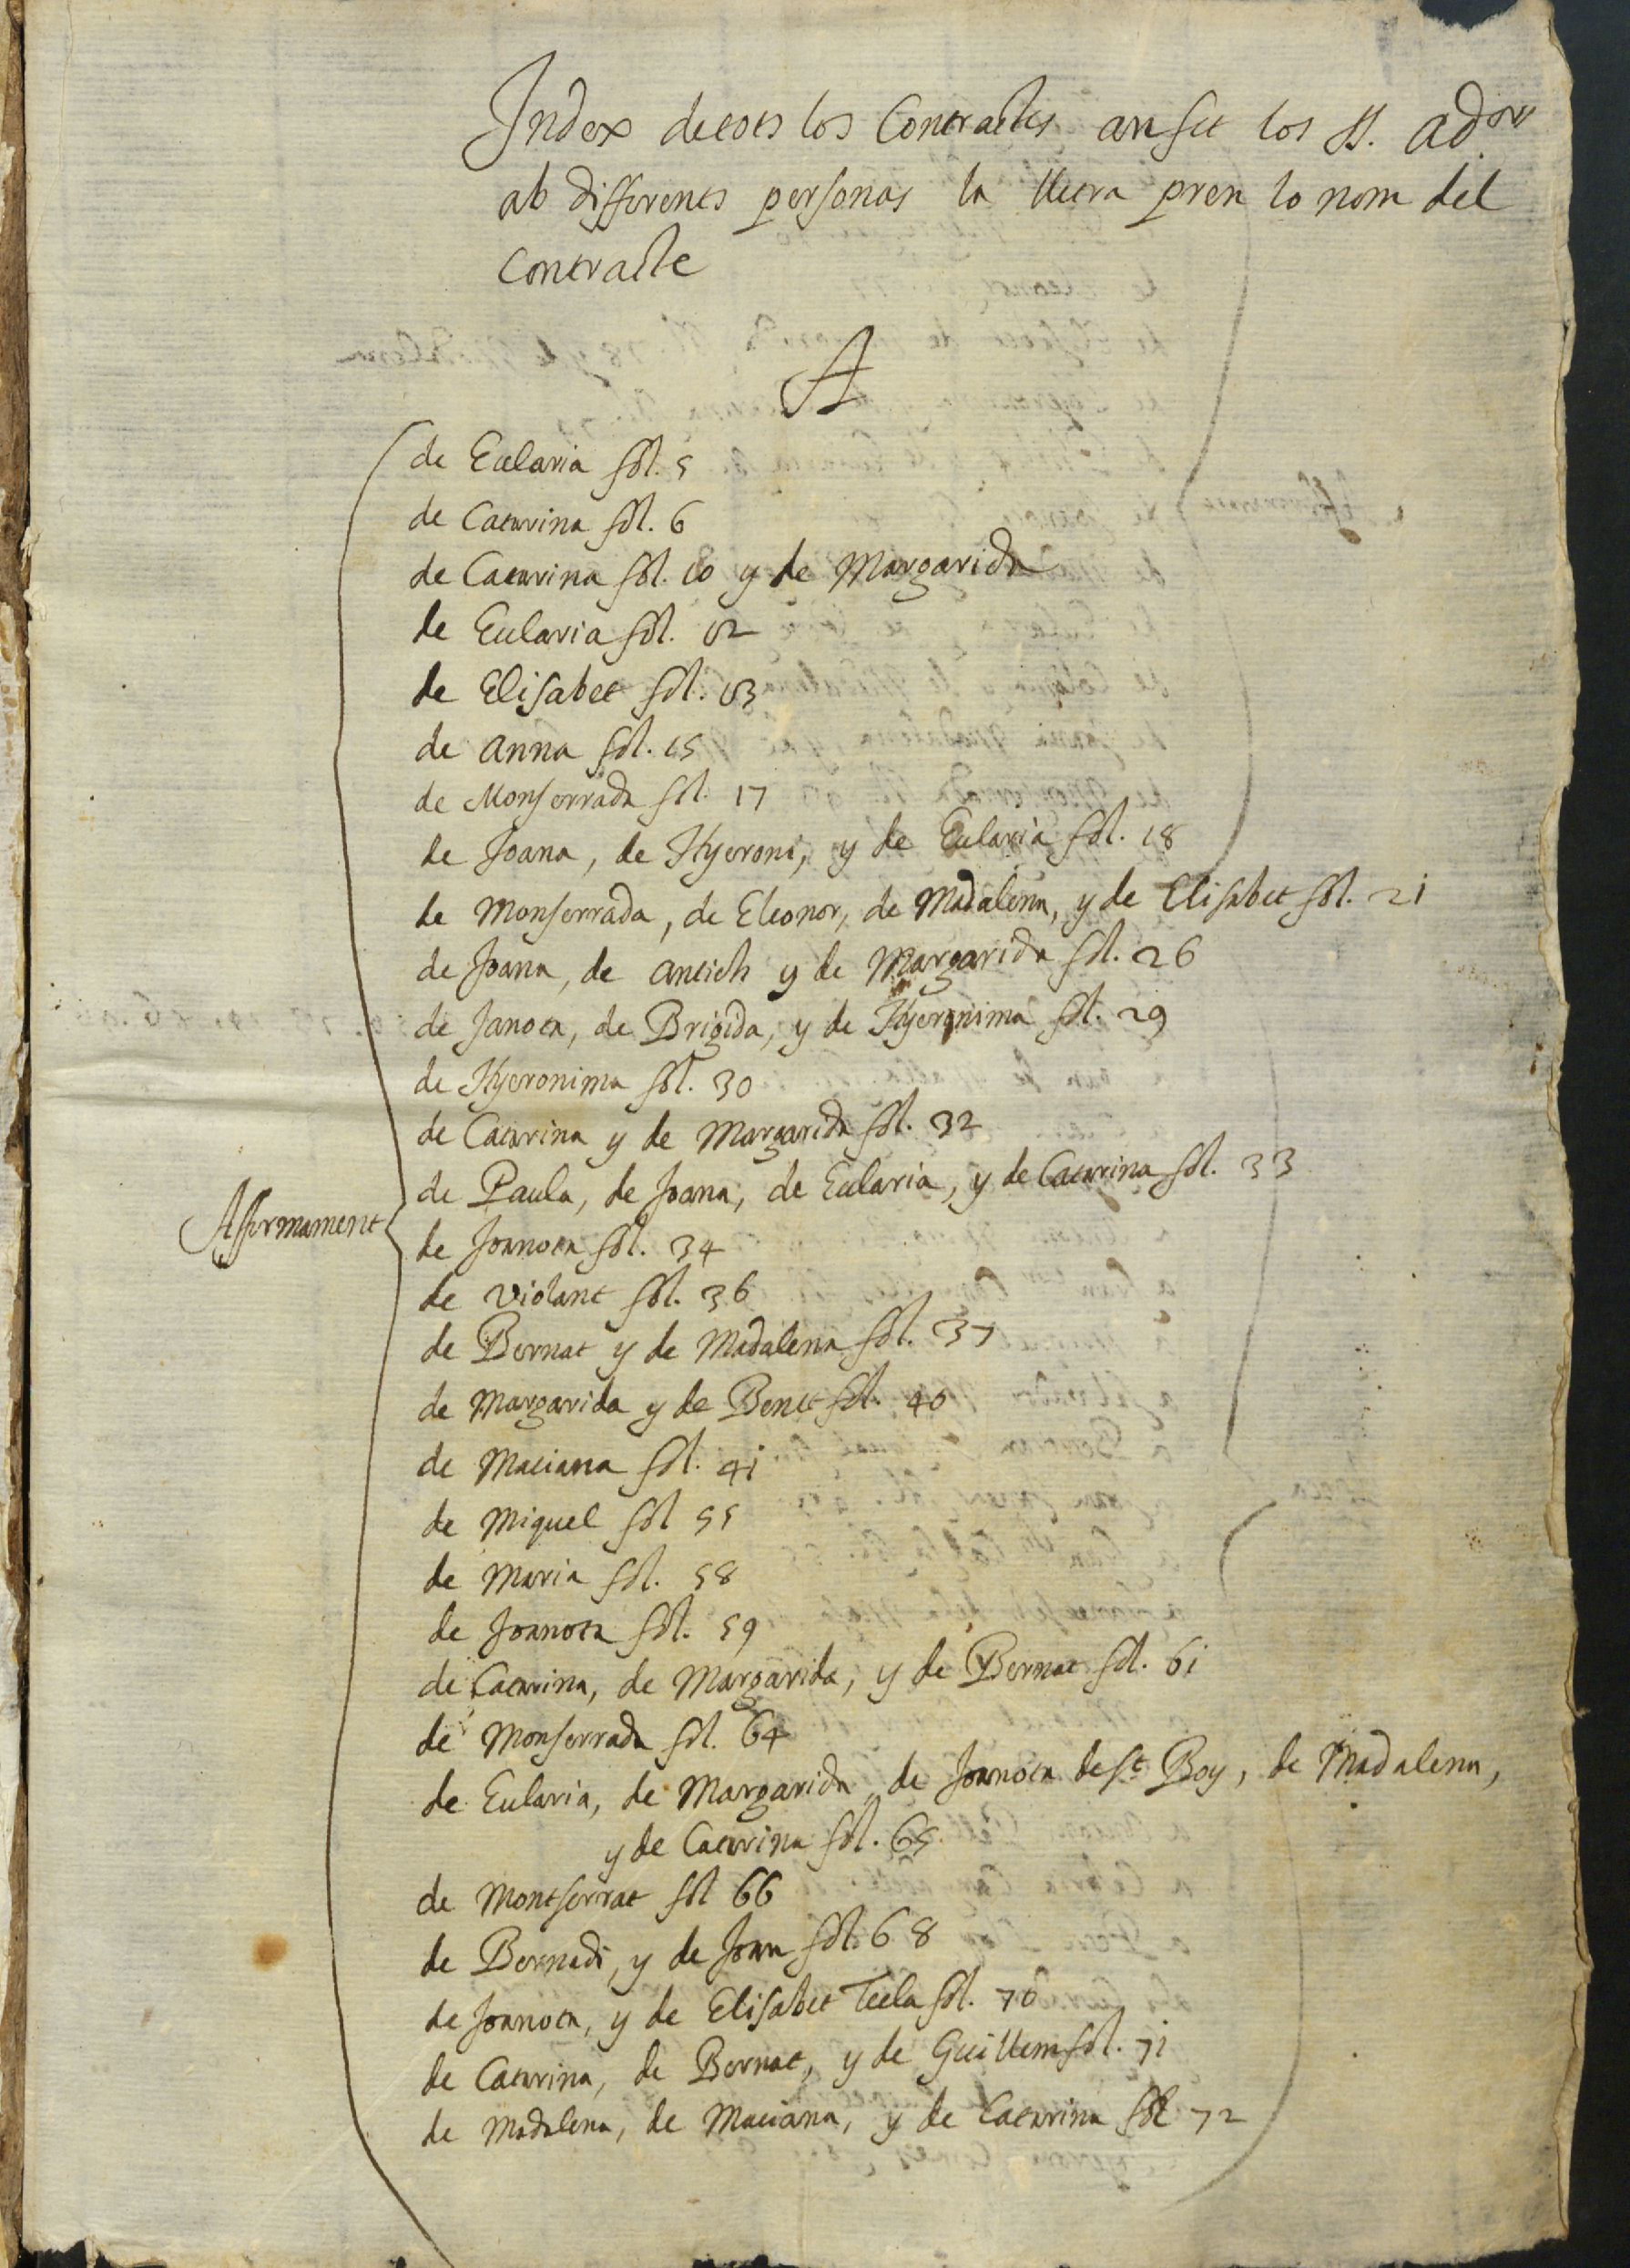 Index de tots los Contractes an fet los SS. ad.ors
ab differents personas la lletra pren lo nom del
Contracte
A
de Eularia fol. 5
de Catarina fol. 6
de Catarina fol. 10 y de Margarida
de Eularia fol. 12
de Elisabet fol. 13
de Anna fol. 15
de Monserrada fol. 17
de Joana, de Hyeroni, y de Eularia fol. 18
de Monserrada, de Eleonor, de Madalena, y de Elisabet fol. 21
de Joana, de Antich y de Margarida fol. 26
de Janota, de Brigida, y de Hyeronima fol. 29
de Hyeronima fol. 30
de Catarina y de Margarida fol. 32
de Paula, de Joana, de Eularia, y de Catarina fol. 33
Affermament
de Joanota fol. 34
de Violant fol. 36
de Bernat y de Madalena fol. 37
de Margarida y de Benet fol. 40
de Maciana fol. 41
de Miquel fol 55
de Maria fol. 58
de Joanota fol. 59
de Catarina, de Margarida, y de Bernat fol. 61
de Monserrada fol. 64
de Eularia, de Margarida, de Joanota de St Boy, de Madalena,
y de Catarina fol. 65
de Montserrat fol 66
de Bernadi, y de Joan fol. 68
de Joanota, y de Elisabet Tecla fol. 70
de Catarina, de Bernat, y de Guillem fol. 71
de Madalena, de Maciana, y de Catarina fol 72